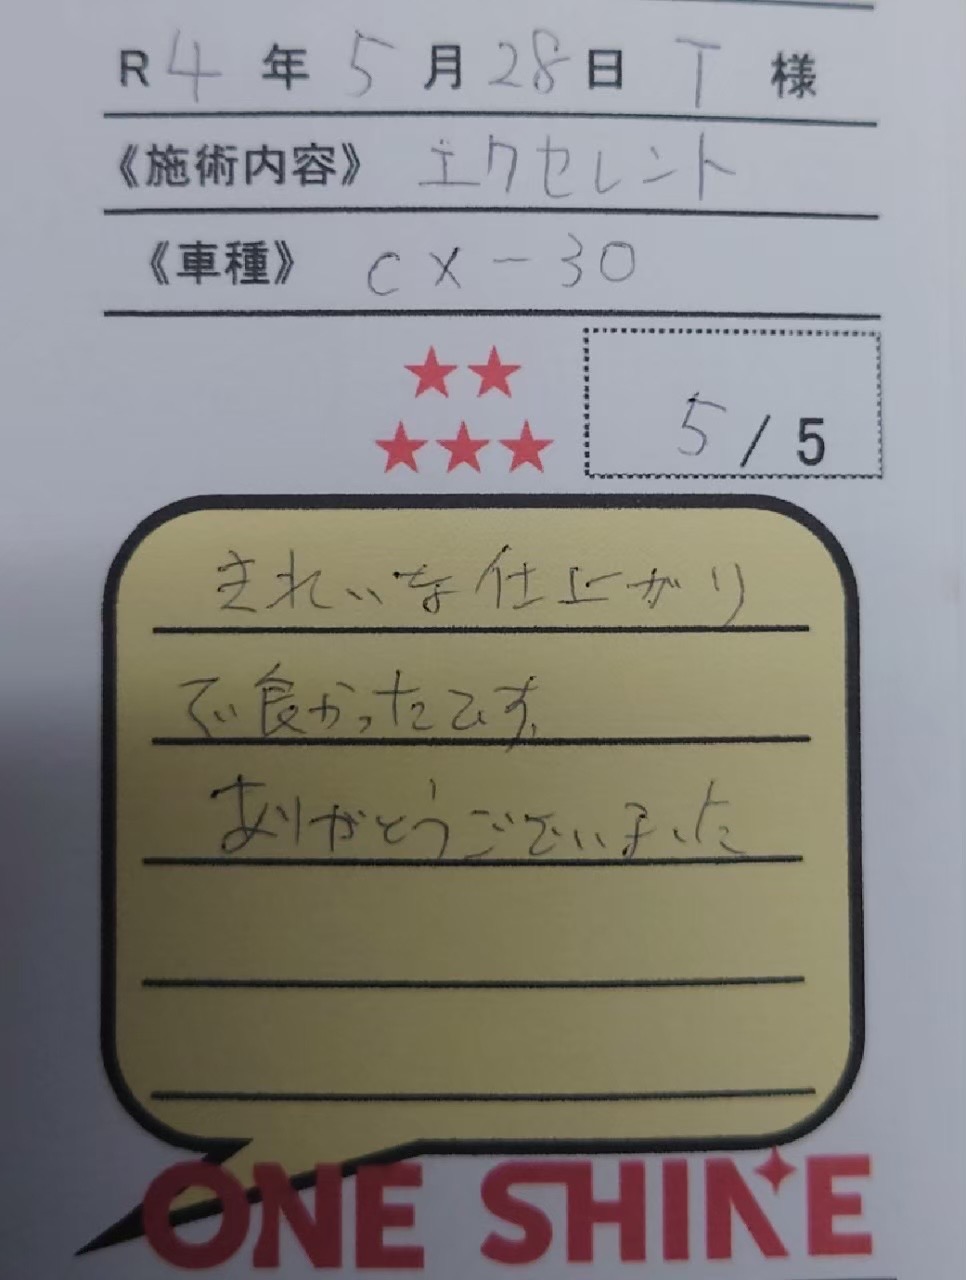 R4年5月28日 T 様
《施術内容》 エクセレント
《車種》 CX-30
★★
★★★
5/5
きれいな仕上がり
で良かったです。
ありがとうございました
ONE SHINE